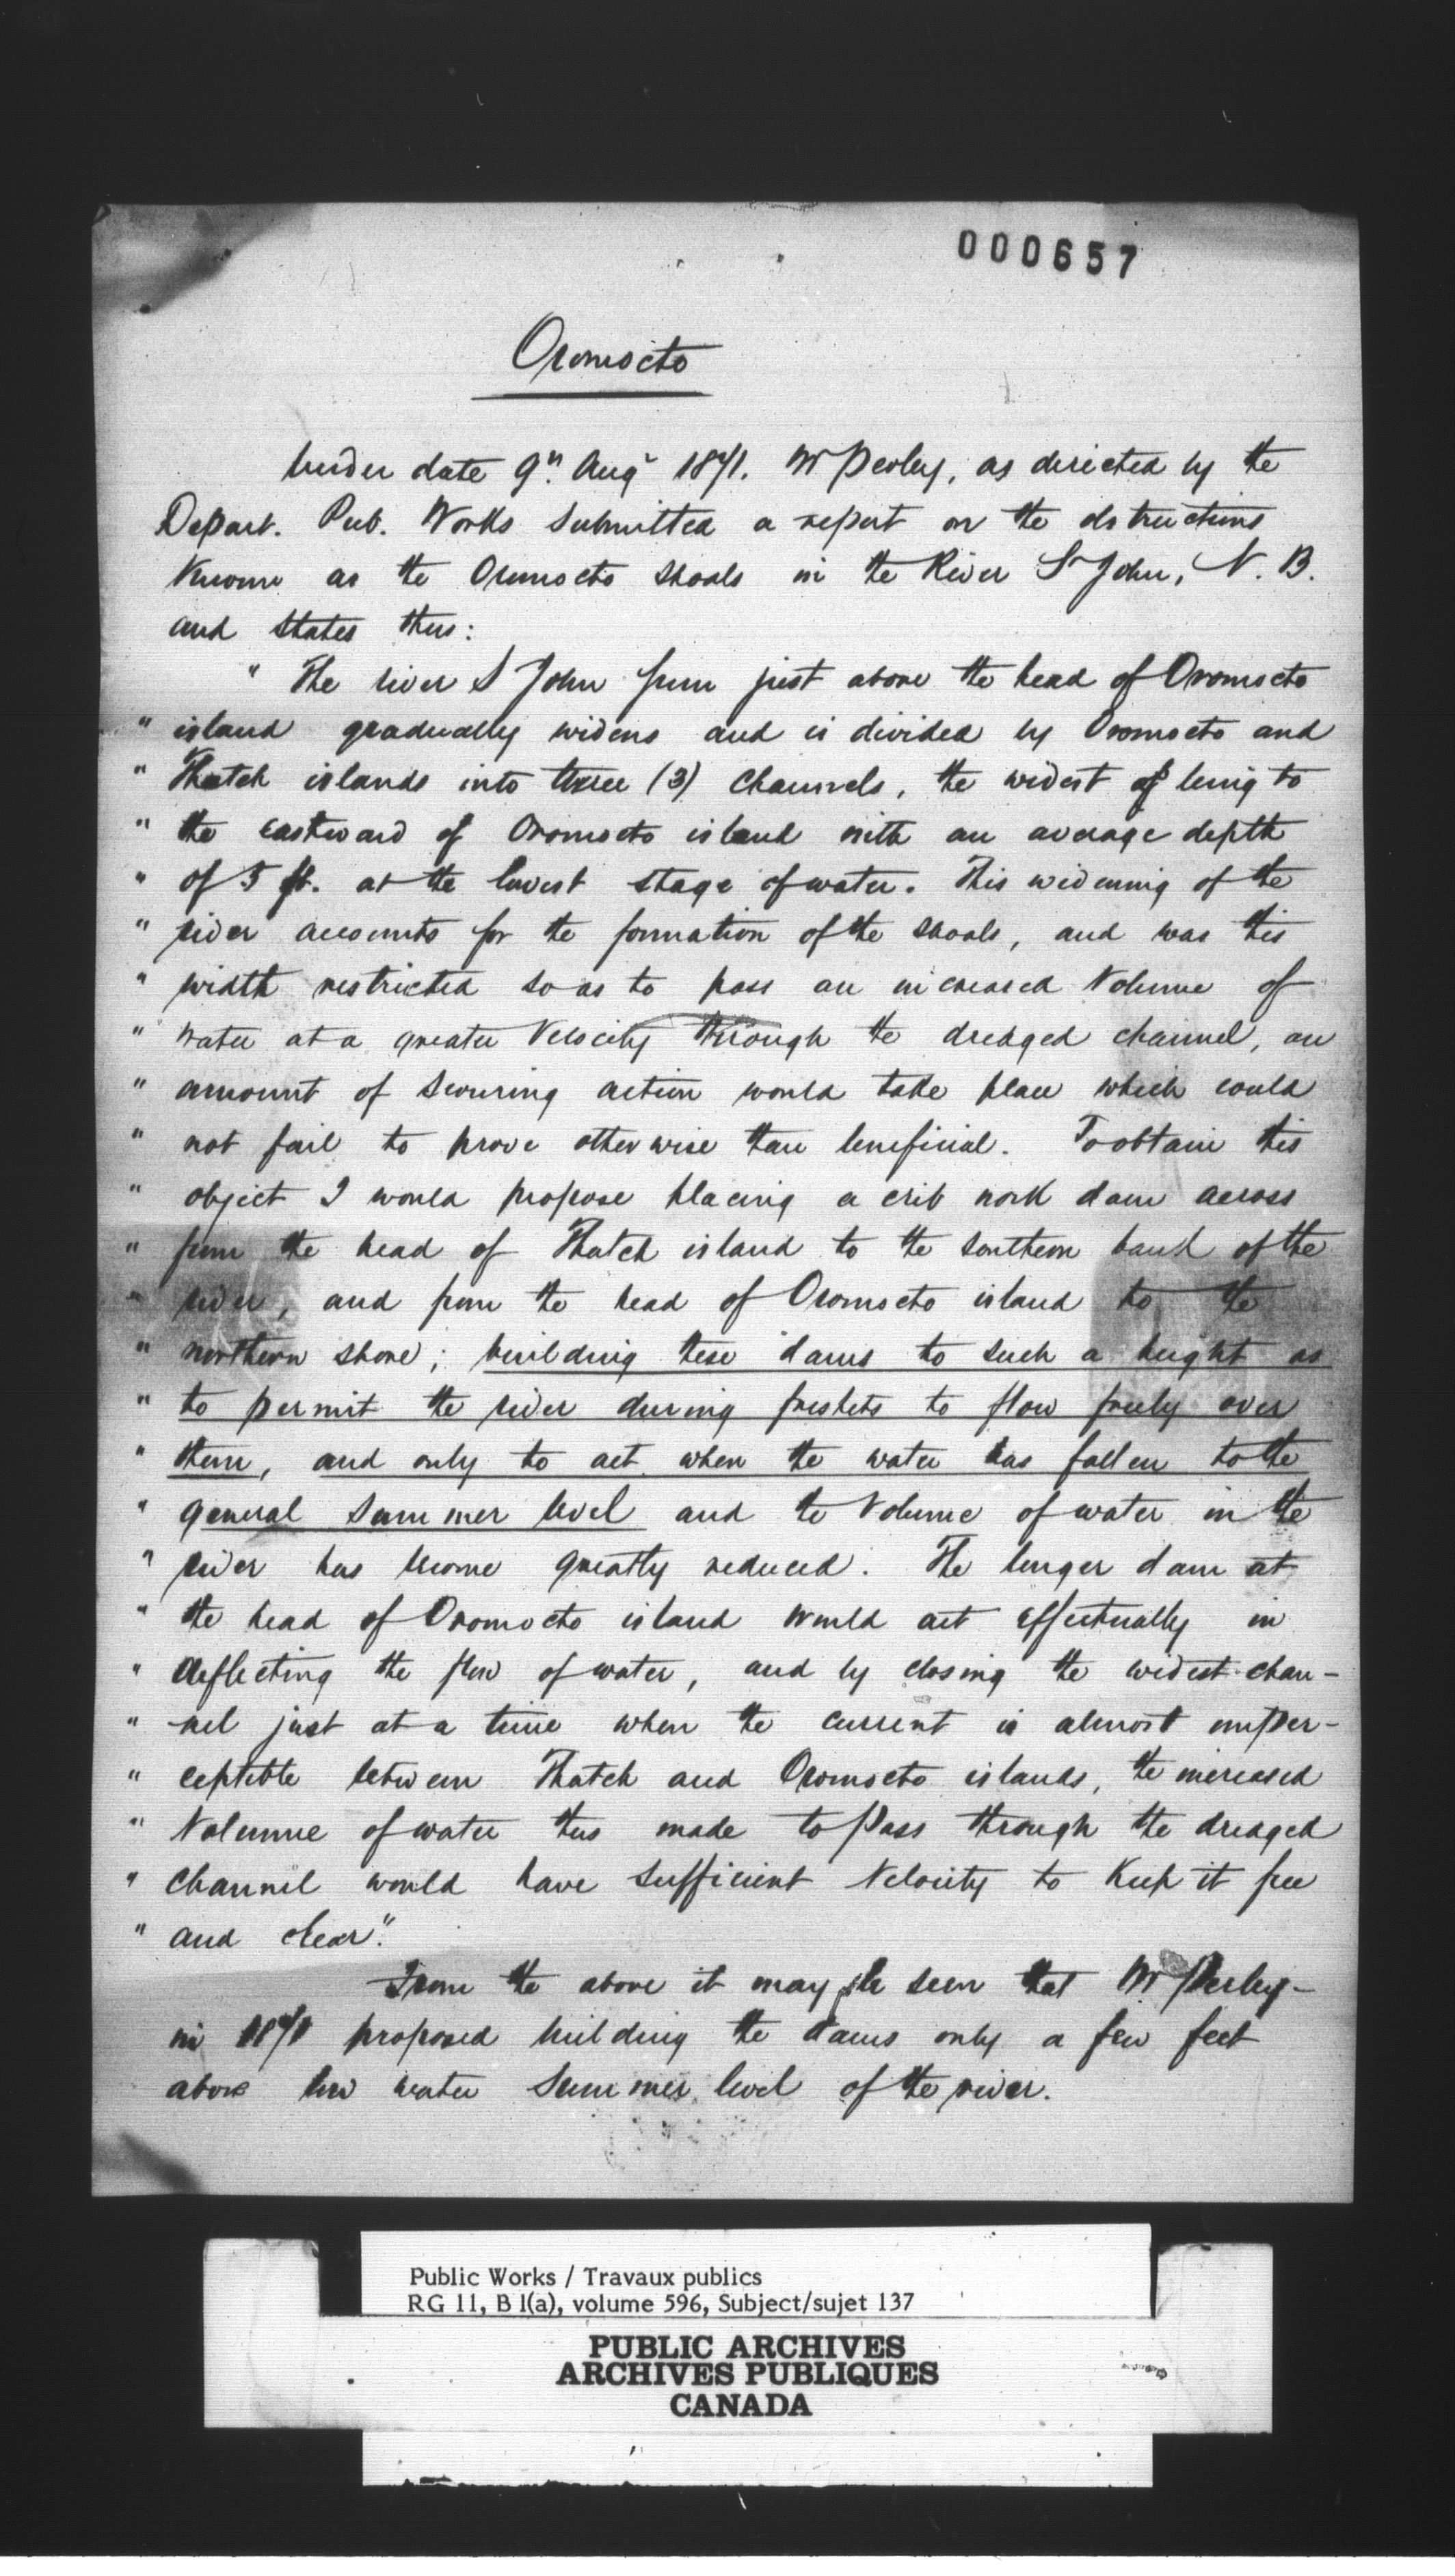 000657
Oromocto
Under date 9th Augt 1871. Mr Perley, as directed by the
Depart. Pub. Works submitted a report on the obstructions
known as the Oromocto shoals in the River St John, N. B.
and states thus:
" The river St John from just above the head of Oromocto
" island gradually widens and is divided by Oromocto and
" Thatch islands into three (3) channels, the widest of being to
" the eastward of Oromocto island with an average depth
" of 5 ft. at the lowest stage of water. This widening of the
" river accounts for the formation of the shoals, and was this
" width restricted so as to pass an increased volume of
" water at a greater velocity through the dredged channel, an
" amount of scouring action would take place which could
" not fail to prove otherwise than beneficial. To obtain this
" object I would propose placing a crib work dam across
" from the head of Thatch island to the southern bank of the
" river, and from the head of Oromocto island to the
" northern shore; building these dams to such a height as
" to permit the river during freshets to flow freely over
" them, and only to act when the water has fallen to the
" general summer level and the volume of water in the
" river has become greatly reduced. The longer dam at
" the head of Oromocto island would act effectually in
" deflecting the flow of water, and by closing the widest chan-
" nel just at a time when the current is almost imper-
" ceptible between Thatch and Oromocto islands, the increased
" volume of water thus made to pass through the dredged
" channel would have sufficient velocity to keep it free
" and clear".
From the above it may be seen that Mr Perley-
in 1871 proposed building the dams only a few feet
above low water summer level of the river.
Public Works / Travaux publics
RG 11, B 1(a), volume 596, Subject/sujet 137
PUBLIC ARCHIVES
ARCHIVES PUBLIQUES
CANADA